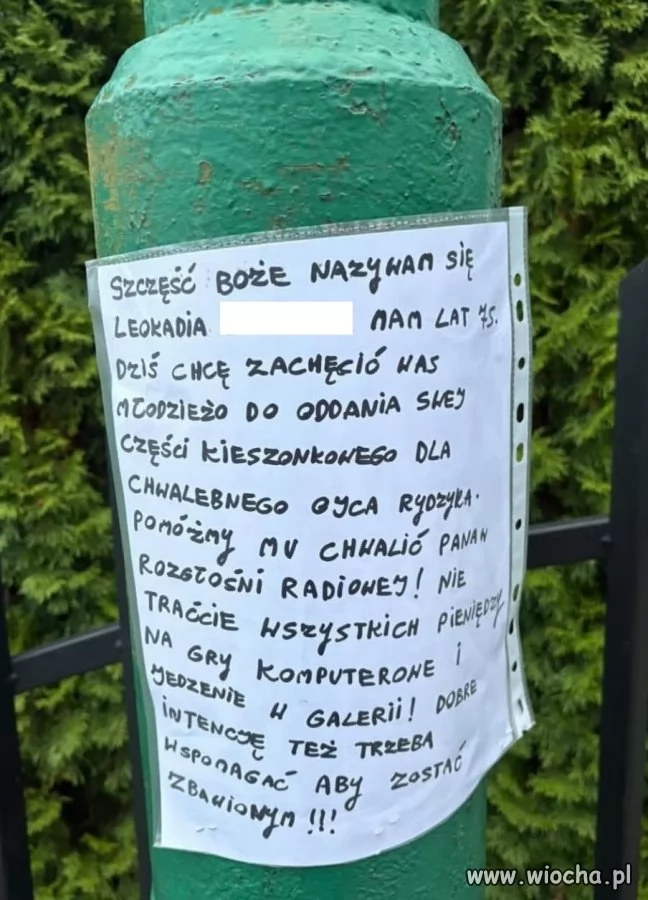 SZCZĘŚĆ BOŻE NAZYWAM SIĘ
LEOKADIA MAM LAT 75.
DZIŚ CHCĘ ZACHĘCIĆ WAS
MŁODZIEŻO DO ODDANIA SWEJ
CZĘŚCI KIESZONKOWEGO DLA
CHWALEBNEGO OJCA RYDZYKA.
POMÓŻMY MU CHWALIĆ PANA W
ROZGŁOŚNI RADIOWEJ! NIE
TRAĆCIE WSZYSTKICH PIENIĘDZY
NA GRY KOMPUTEROWE I
JEDZENIE W GALERII! DOBRE
INTENCJĘ TEŻ TRZEBA
WSPOMAGAĆ ABY ZOSTAĆ
ZBAWIONYM !!!
www.wiocha.pl